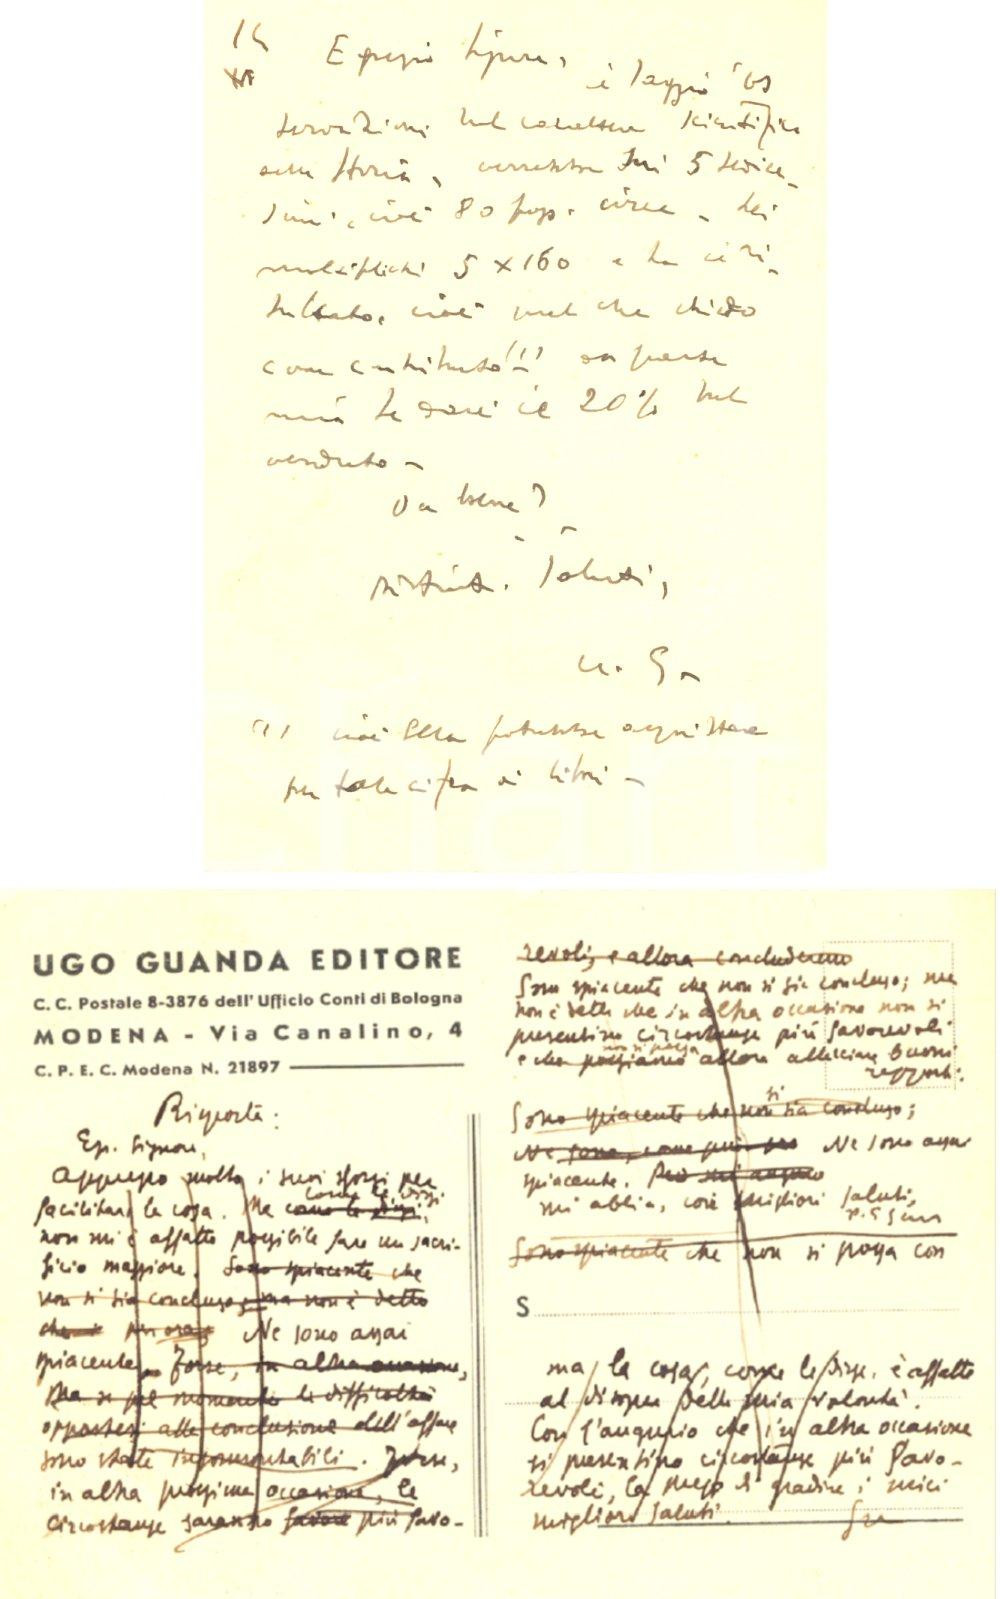 Egregio Signore,
il Saggio
sul carattere scientifico
della Storia, verrebbe
cioè 80 pag. circa -
moltiplichi 5 x 160 e ha il ri-
sultato, cioè quel che chiedo
come contributo (1) da parte
mia le darei il 20% sul
venduto -
Va bene?
Distinti Saluti,
U. G.
(1) cioè Ella potrebbe acquistare
per tale cifra di libri -
UGO GUANDA EDITORE
C. C. Postale 8-3876 dell'Ufficio Conti di Bologna
MODENA - Via Canalino, 4
C. P. E. C. Modena N. 21897
Risposta:
Eg. Signore,
Apprezzo molto i suoi sforzi per
come le dissi
facilitare la cosa. Ma come le dissi,
non mi è affatto possibile fare un sacri-
ficio maggiore. Sono spiacente che
non si sia concluso; ma non è detto
che Ne sono assai
spiacente. Forse, in altra occasione,
Ma se pel momento le difficoltà
oppostesi alla conclusione dell'affare
sono state insormontabili. Forse,
in altra prossima occasione, le
circostanze saranno più favo-
revoli, e allora concluderemo
Sono spiacente che non si sia concluso; ma
non è detto che in altra occasione non si
presentino circostanze più favorevoli
e che possiamo allora allacciare buoni
rapporti.
si
Sono spiacente che non sia concluso;
Ne sono, come può Ne sono assai
spiacente.
mi abbia, coi migliori saluti,
Sono spiacente che non si possa con
S
ma la cosa, come le dissi, è affatto
al disopra della mia volontà.
Con l'augurio che in altra occasione
si presentino circostanze più favo-
revoli, la prego di gradire i miei
migliori saluti.